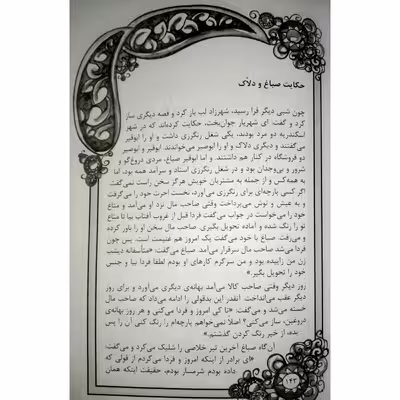 حکایت صباغ و دلاک
چون شبی دیگر فرا رسید، شهرزاد لب باز کرد و قصه دیگری ساز
کرد و گفت: ای شهریار جوان‌بخت، حکایت کرده‌اند که در شهر
اسکندریه دو مرد بودند، یکی شغل رنگرزی داشت و او را ابوقیر
می‌گفتند و دیگری دلاک و او را ابوصیر می‌خواندند. ابوقیر و ابوصیر
دو فروشگاه در کنار هم داشتند. و اما ابوقیر صباغ، مردی دروغ‌گو و
شرور و بی‌وجدان بود و در شغل رنگرزی استاد و سرآمد همه بود. اما
به همه‌کس و از جمله به مشتریان خویش هرگز سخن راست نمی‌گفت.
اگر کسی پارچه‌ای برای رنگرزی می‌آورد، نخست اجرت خود را می‌گرفت
و به عیش و نوش می‌پرداخت وقتی صاحب مال نزد او می‌آمد و متاع
خود را می‌خواست در جواب می‌گفت فردا قبل از غروب آفتاب بیا تا متاع
تو را رنگ شده و آماده تحویل بگیری. صاحب مال سخن او را باور کرده
و می‌رفت. صباغ با خود می‌گفت یک امروز هم غنیمت است. پس چون
فردا صاحب مال سرقرار می‌آمد. صباغ به او می‌گفت: «متأسفانه دیشب
زن من زاییده بود و من سرگرم کارهای او بودم لطفا فردا بیا و جنس
خود را تحویل بگیر.»
روز دیگر وقتی صاحب کالا می‌آمد بهانه‌ی دیگری می‌آورد و برای روز
دیگر عقب می‌انداخت. آنقدر این بدقولی را ادامه می‌داد که صاحب مال
خسته می‌شد و می‌گفت: «تا کی امروز و فردا می‌کنی و هر روز بهانه‌ی
دروغین، ساز می‌کنی؟ اصلا نمی‌خواهم پارچه‌ام را رنگ کنی آن را پس
بده، از خیر رنگ کردن گذشتم.»
آن‌گاه صباغ آخرین تیر خلاصی را شلیک می‌کرد و می‌گفت:
«ای برادر از اینکه امروز و فردا می‌کردم از قولی که
داده بودم شرمساز بودم، حقیقت اینکه همان
۱۴۳